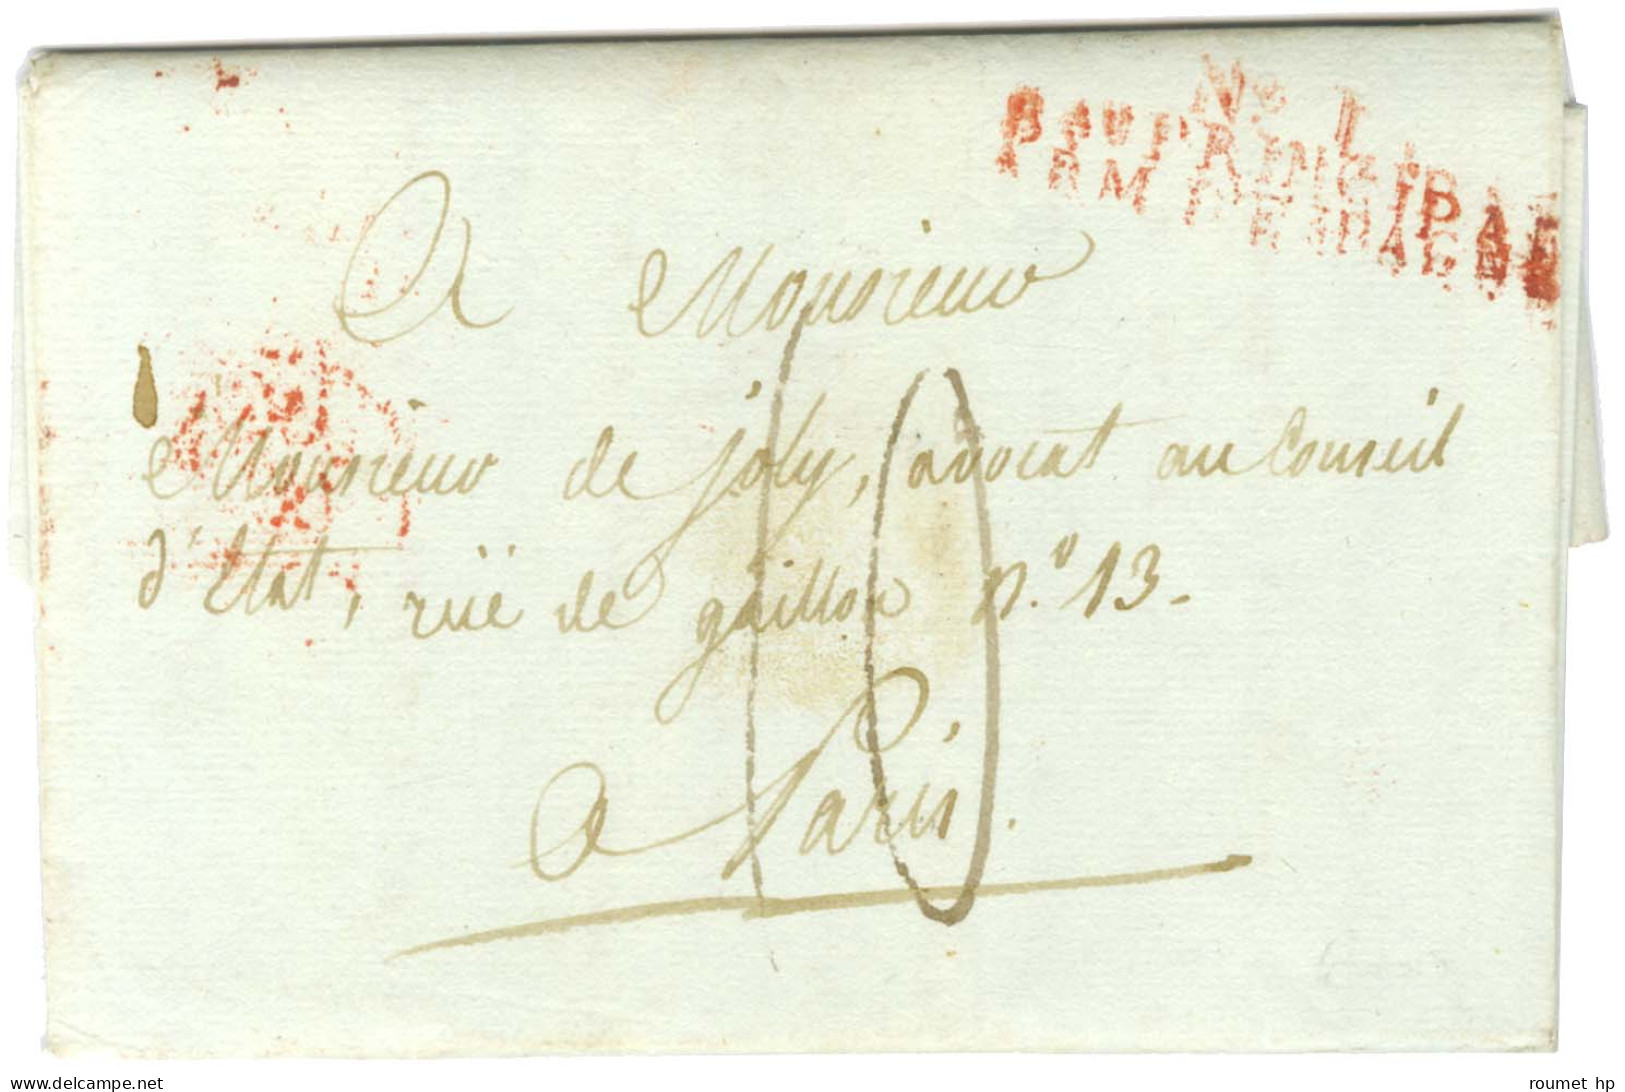 No 1
Bau PRINCIPAL
ARM D'ESPAGNE
A Monsieur
Monsieur de joly, avocat au Conseil
d'Etat, rüe de gaillon n.o 13-
10
a Paris.
roumet hp
www.delcampe.net